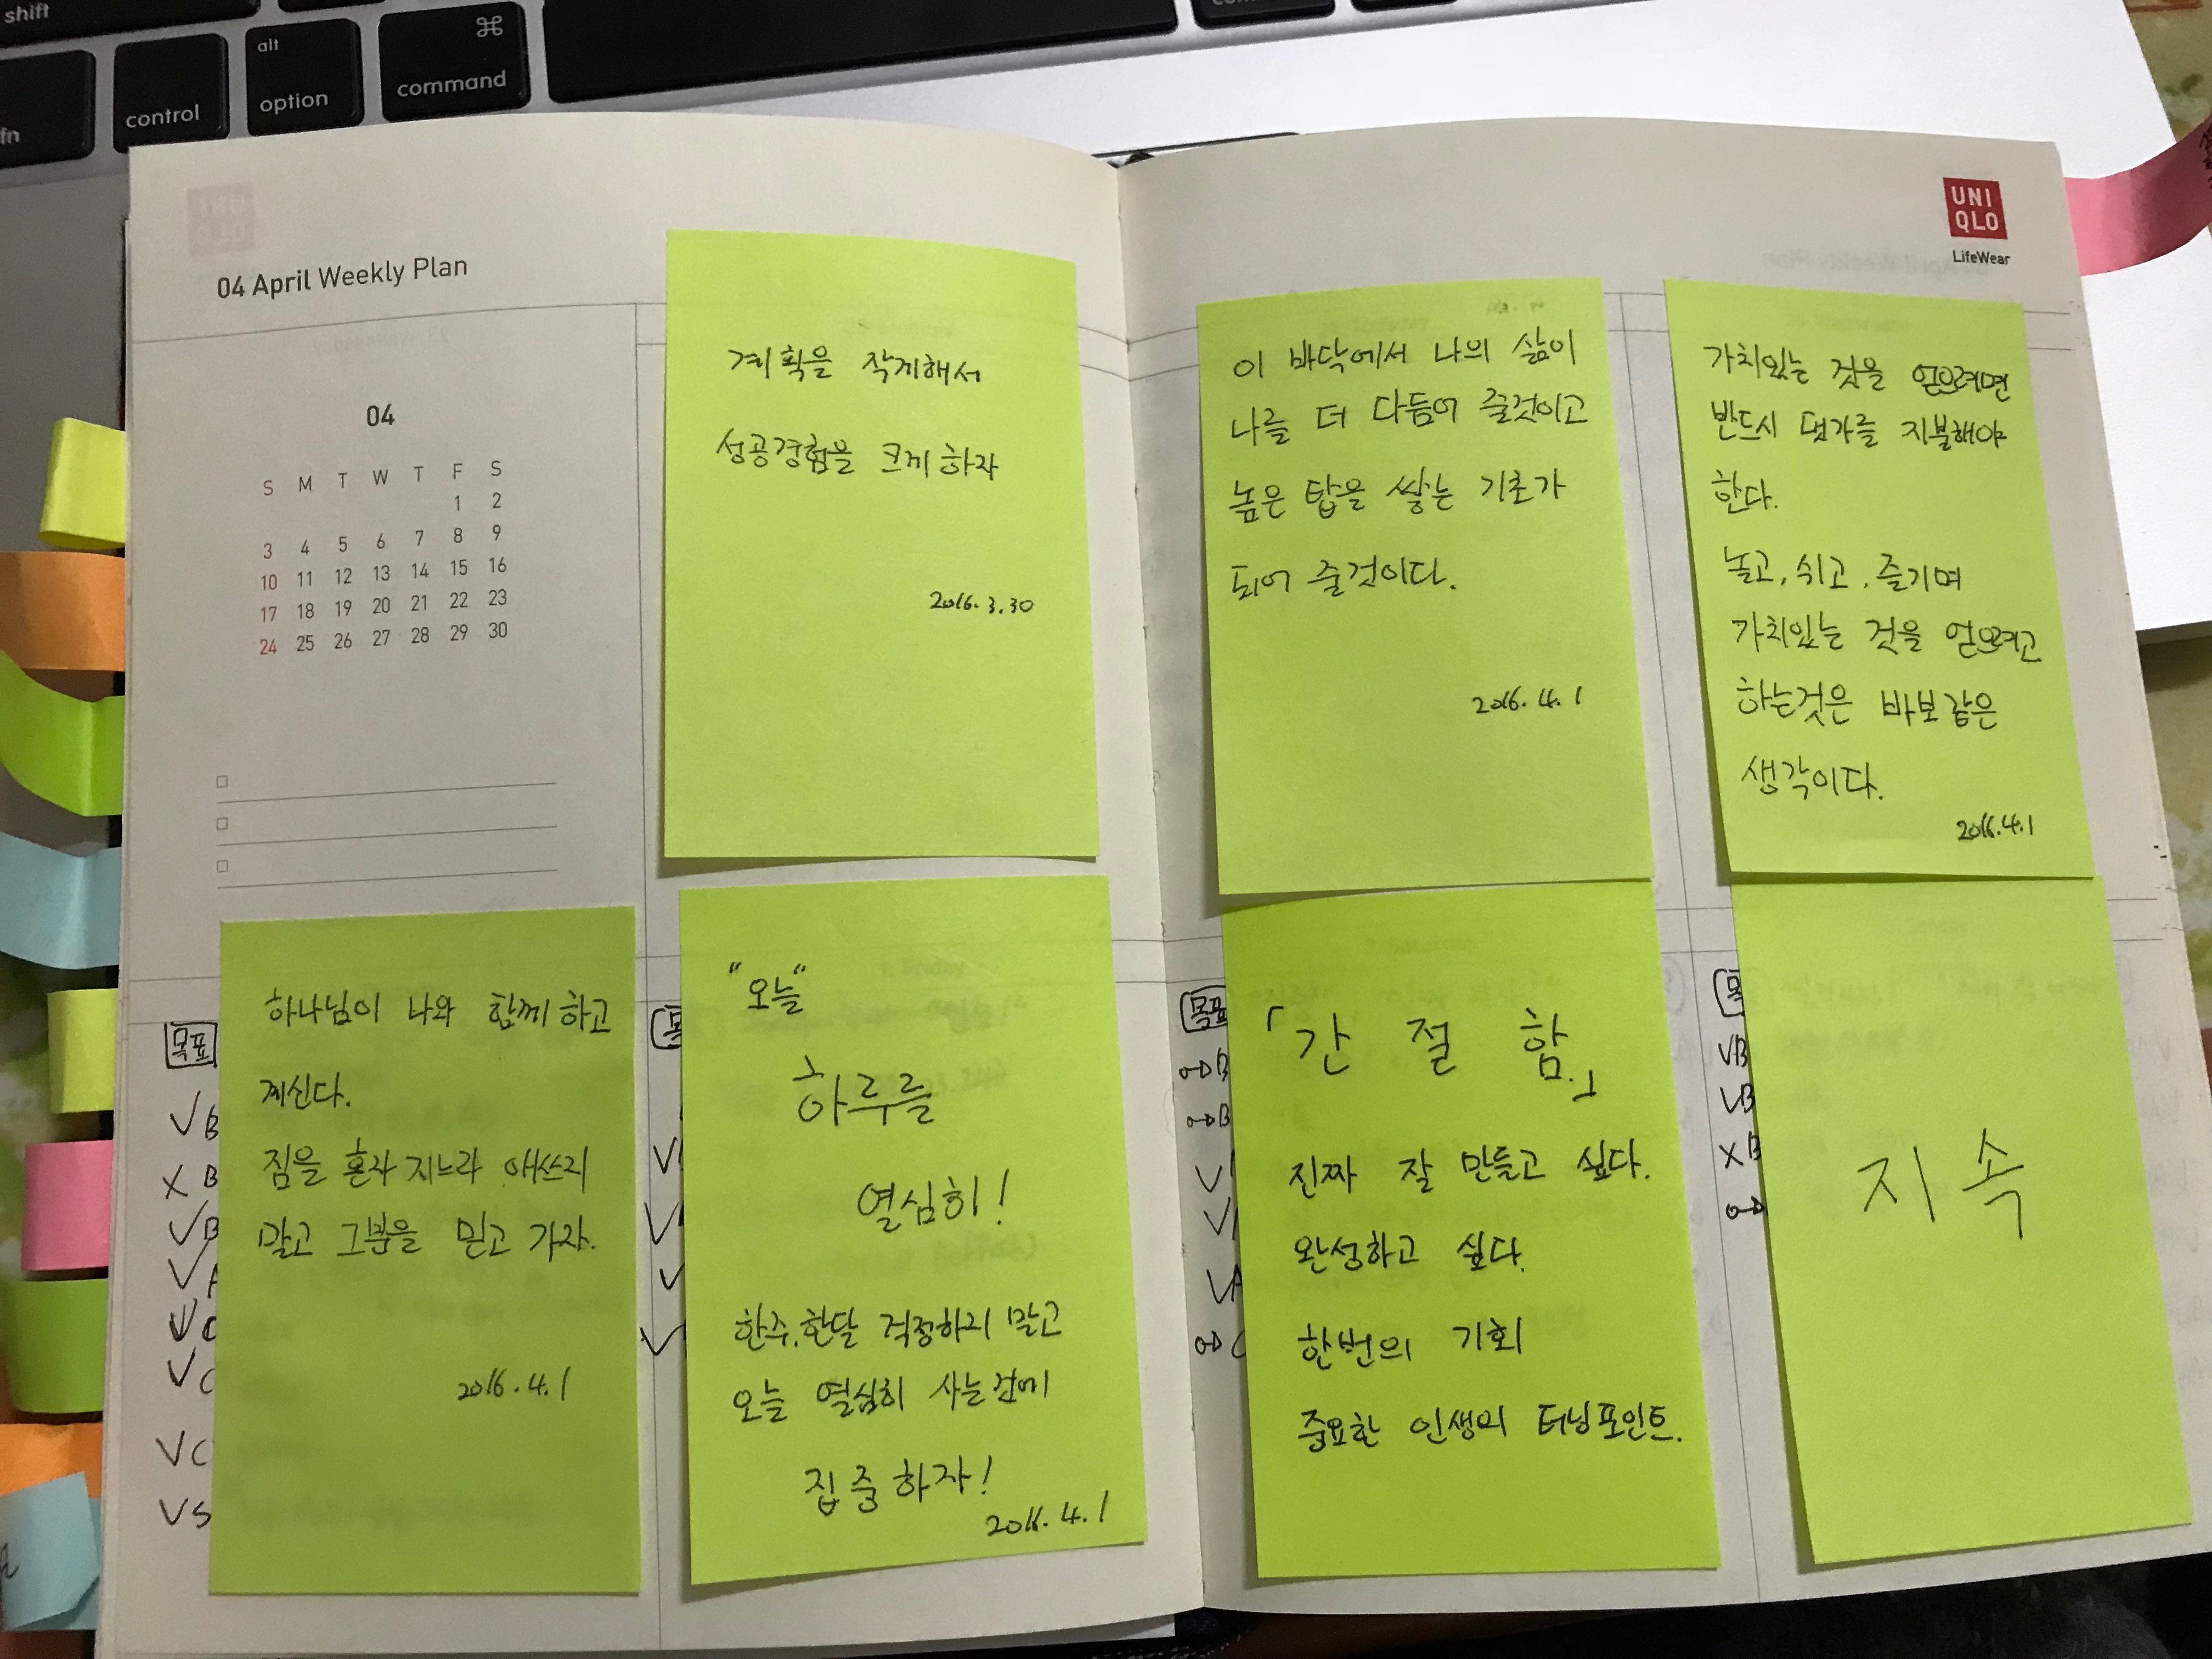 shift
fn
control
alt
option
⌘
command
04 April Weekly Plan
04
S M T W T F S
1 2
3 4 5 6 7 8 9
10 11 12 13 14 15 16
17 18 19 20 21 22 23
24 25 26 27 28 29 30
계획을 작게해서
성공경험을 크게 하자
2016.3.30
하나님이 나와 함께 하고
계신다.
짐을 혼자 지느라 애쓰지
말고 그분을 믿고 가자.
2016.4.1
"오늘"
하루를
열심히!
한주, 한달 걱정하지 말고
오늘 열심히 사는 것에
집중하자!
2016.4.1
목표
VB
XB
VB
VA
VC
VC
VC
VS
UNI
QLO
LifeWear
이 바닥에서 나의 삶이
나를 더 다듬어 줄것이고
높은 탑을 쌓는 기초가
되어 줄것이다.
2016.4.1
가치있는 것을 얻으려면
반드시 댓가를 지불해야
한다.
놀고, 쉬고, 즐기며
가치있는 것을 얻으려고
하는것은 바보같은
생각이다.
2016.4.1
목표
「간절함.」
진짜 잘 만들고 싶다.
완성하고 싶다.
한번의 기회
중요한 인생의 터닝포인트.
VB
VB
XB
지속